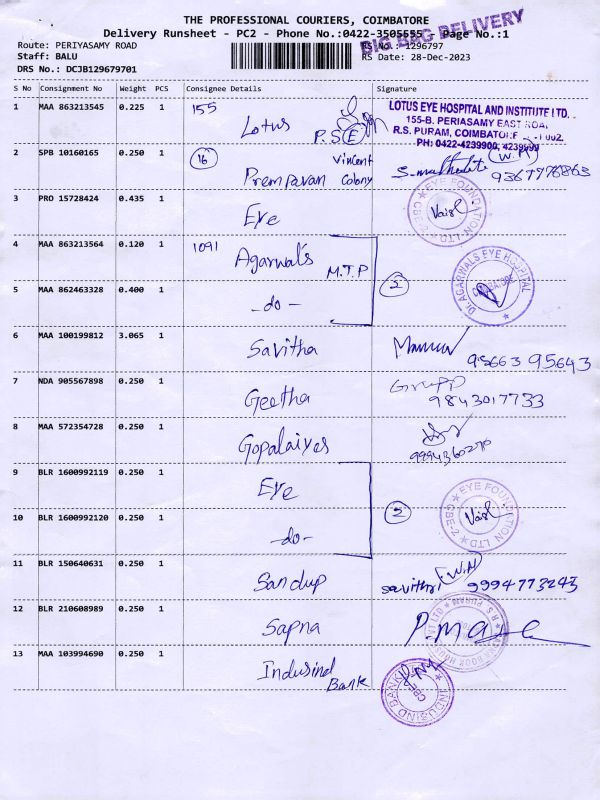 THE PROFESSIONAL COURIERS, COIMBATORE
Delivery Runsheet - PC2 - Phone No.:0422-3505555 - Page No.:1
BIG BAG DELIVERY
Route: PERIYASAMY ROAD
RS No.: 1296797
Staff: BALU
RS Date: 28-Dec-2023
DRS No.: DCJB129679701
S No Consignment No Weight PCS Consignee Details Signature
1 MAA 863213545 0.225 1 155 Lotus P.S(E)
LOTUS EYE HOSPITAL AND INSTITUTE LTD.
155-B, PERIASAMY EAST ROAD
R.S. PURAM, COIMBATORE
PH: 0422-4239900, 4239999
2 SPB 10160165 0.250 1 16 Prempavan Vincent Colony (W.A) 9367776863
3 PRO 15728424 0.435 1 Eye
EYE FOUNDATION LTD CBE-2
4 MAA 863213564 0.120 1 1091 Agarwal's M.T.P
2
Dr. AGARWALS EYE HOSPITAL
COIMBATORE
5 MAA 862463328 0.400 1 -do-
6 MAA 100199812 3.065 1 Savitha 95663 95643
7 NDA 905567898 0.250 1 Geetha 9843017733
8 MAA 572354728 0.250 1 Gopalaiyes 9994360270
9 BLR 1600992119 0.250 1 Eye
2
EYE FOUNDATION LTD CBE-2
10 BLR 1600992120 0.250 1 -do-
11 BLR 150640631 0.250 1 Sandup savithri (W.A) 9994773243
12 BLR 210608989 0.250 1 Sapna
R.S. PURAM
13 MAA 103994690 0.250 1 Indusind Bank
INDUSIND BANK CBE